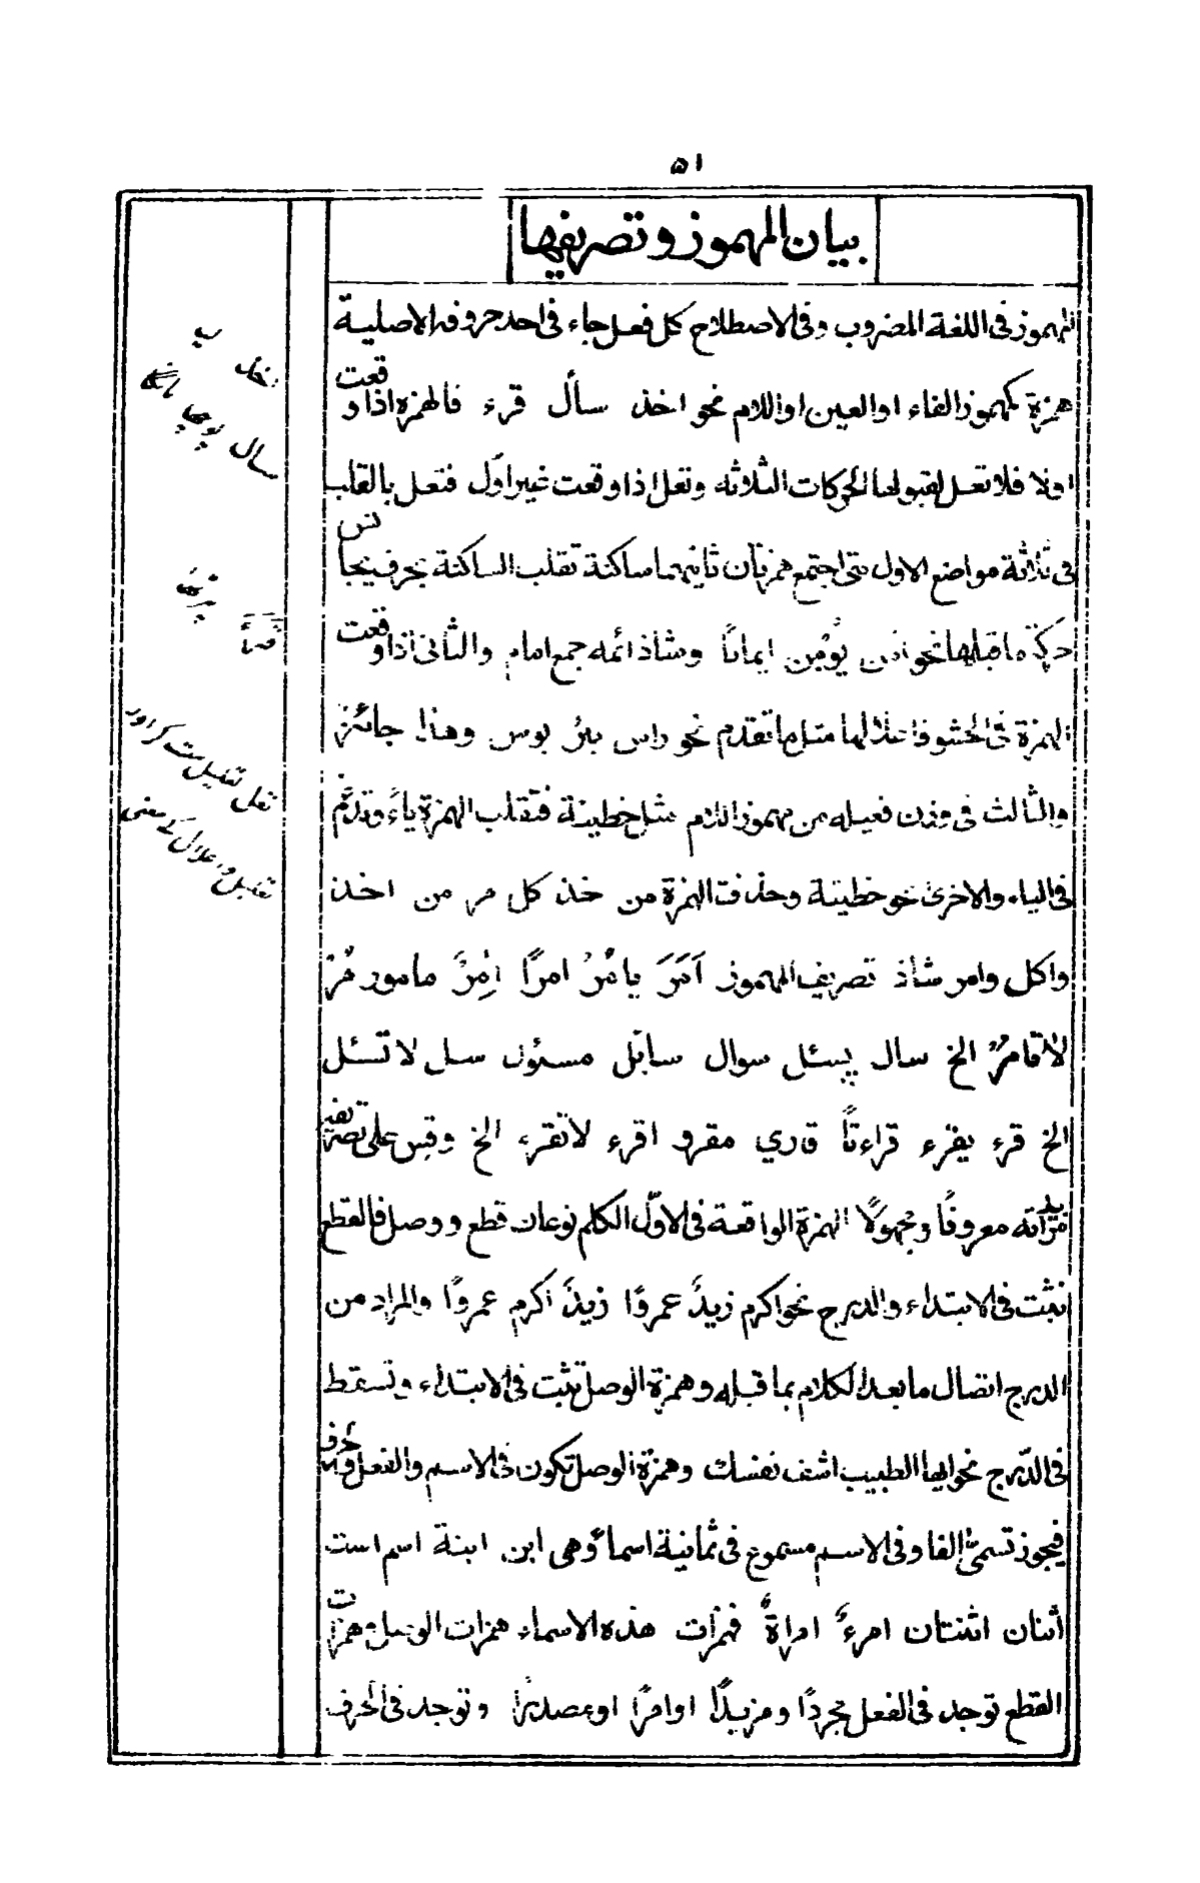 ۵۱
بيان المهموز وتصريفها
المهموز في اللغة المضروب وفي الاصطلاح كل فعل جاء في احد حروفه الاصلية
همزة كمهموز الفاء او العين او اللام نحو اخذ سأل قرء فالهمزة اذا وقعت
اولا فلا تعل لقبولها الحركات الثلاثه وتعل اذا وقعت غير اوّل فتعل بالقلب
في ثلاثة مواضع الاول متى اجتمع همزتان ثانيهما ساكنة تقلب الساكنة بحرف يجانس
حركة ما قبلها نحو اٰمن يؤمن ايمانًا وشاذ ائمه جمع امام والثاني اذا وقعت
الهمزة في الحشو فاعلالها مثل ما تقدم نحو راس بئر بوس وهذا جائز
والثالث في وزن فعيله من مهموز اللام مثل خطيئة فتقلب الهمزة ياءً وتدغم
في الياء والاخرى نحو خطيئة وحذفت الهمزة من خذ كل مر من اخذ
واكل وامر شاذ تصريف المهموز اَمَرَ يامُرُ امرًا اٰمِرٌ مامور مُرْ
لا تامر الخ سال يسئل سوال سائل مسئول سل لا تسئل
الخ قرء يقرء قراءتًا قاري مقرو اقرء لا تقرء الخ وقس على تصريفه
مزيداته معروفًا ومجهولًا الهمزة الواقعة في الاوّل الكلم نوعان قطع ووصل فالقطع
تثبت في الابتداء والدرج نحو اكرم زيدٌ عمروًا زيدٌ اكرم عمروًا والمراد من
الدرج اتصال ما بعد الكلام بما قبله وهمزة الوصل تثبت في الابتداء وتسقط
في الدّرج نحو ايها الطبيب اشف نفسك وهمزة الوصل تكون في الاسم والفعل وحرف
فيجوز تسمىٰ الفا وفي الاسم مسموع في ثمانية اسماء وهي ابن ابنة اسم است
اثنان اثنتان امرءٌ امراةٌ فهمزات هذه الاسماء همزات الوصل وهمزات
القطع توجد في الفعل مجردًا ومزيدًا اوامرًا او مصدرًا وتوجد في الحرف
سال پوچھا